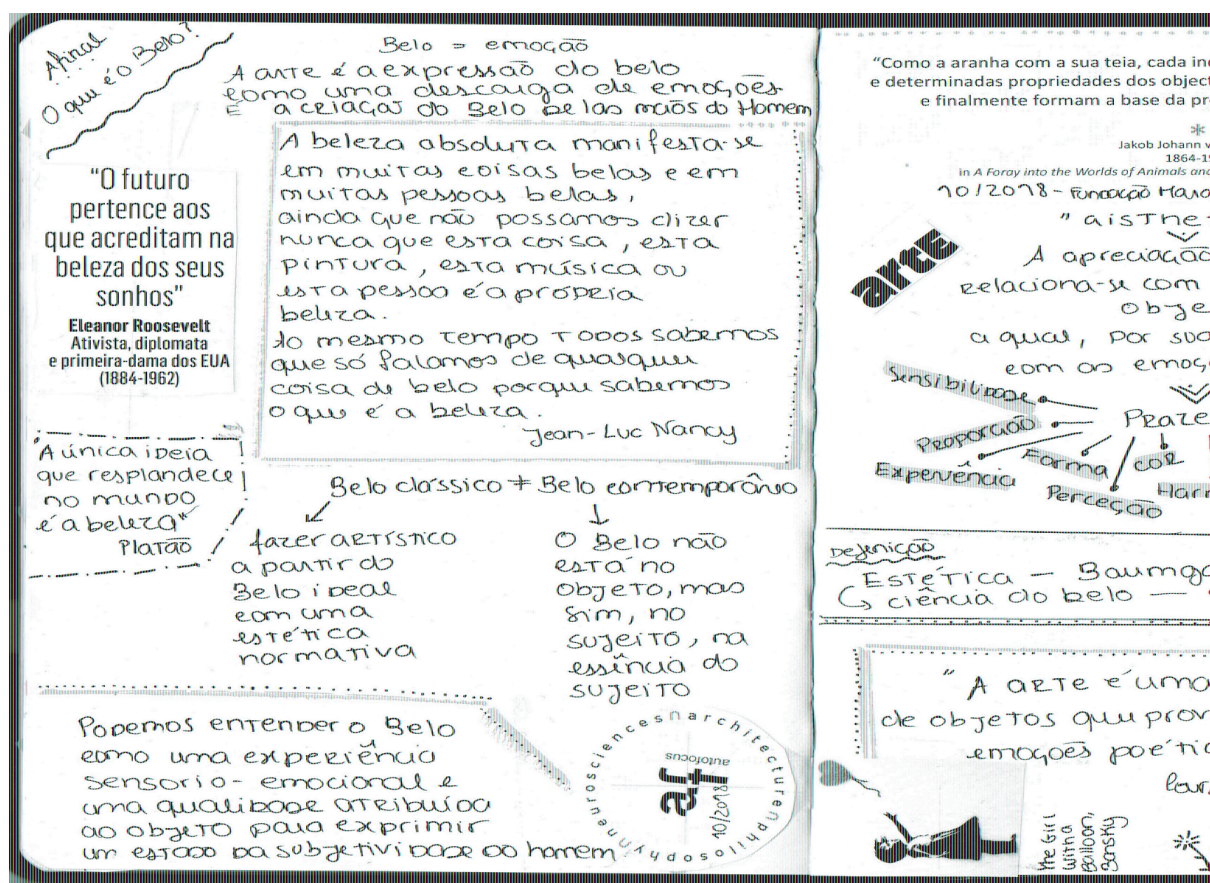 Afinal
O que é o Belo?
Belo = emoção
A arte é a expressão do belo
como uma descarga de emoções
E a criação do Belo pelas mãos do Homem
"O futuro
pertence aos
que acreditam na
beleza dos seus
sonhos"
Eleanor Roosevelt
Ativista, diplomata
e primeira-dama dos EUA
(1884-1962)
A beleza absoluta manifesta-se
em muitas coisas belas e em
muitas pessoas belas,
ainda que não possamos dizer
nunca que esta coisa, esta
pintura, esta música ou
esta pessoa é a própria
beleza.
Ao mesmo tempo todos sabemos
que só falamos de qualquer
coisa de belo porque sabemos
o que é a beleza.
Jean-Luc Nancy
"A única ideia
que resplandece
no mundo
é a beleza"
Platão
Belo clássico ≠ Belo contemporâneo
fazer artístico
a partir do
Belo ideal
com uma
estética
normativa
O Belo não
está no
objeto, mas
sim, no
sujeito, na
essência do
sujeito
Podemos entender o Belo
como uma experiência
sensorio-emocional e
uma qualidade atribuída
ao objeto para exprimir
um estado da subjetividade do homem
neurosciencesnarchitecturenphilosophy
autofocus
af
10/2018
"Como a aranha com a sua teia, cada
e determinadas propriedades dos
e finalmente formam a base da
*
Jakob Johann
1864-
in A Foray into the Worlds of Animals
10/2018 - Fundação
arte
A apreciação
relaciona-se com
a qual, por sua
com as
Sensibilidade
Proporção
Experiência
Forma
Perceção
cor
Defenição
Estética -
ciência do belo -
"A arte é uma
de objetos que
emoções
The Girl
with a
Balloon,
Bansky